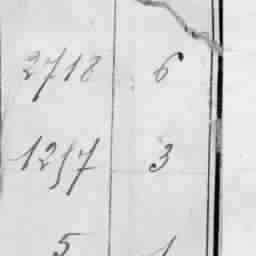 2718 6
1217 3
5 1